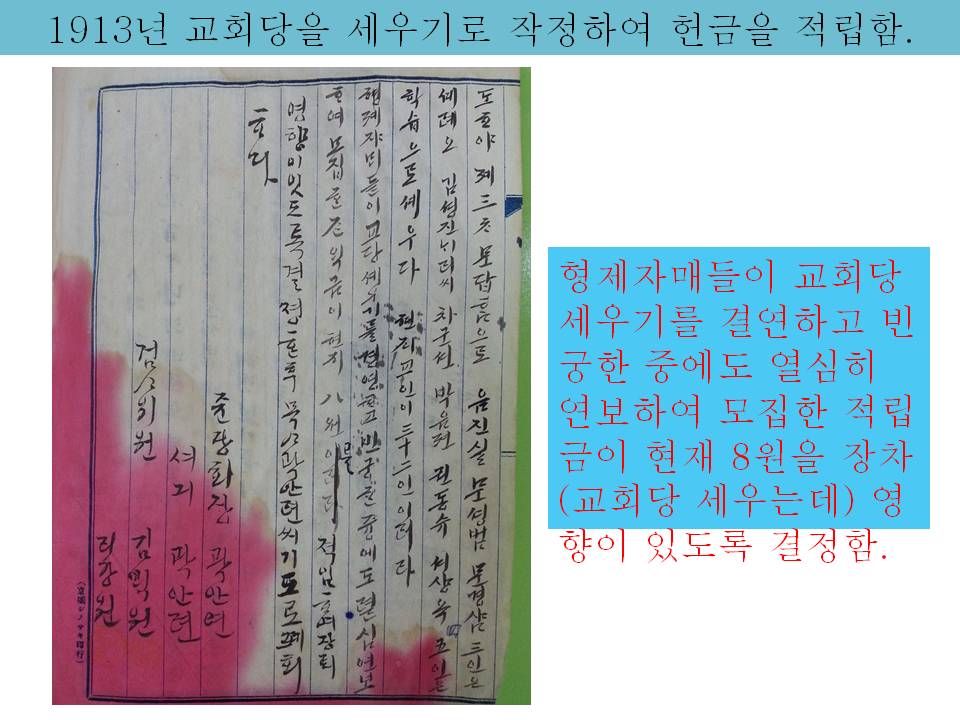 1913년 교회당을 세우기로 작정하여 헌금을 적립함.
형제자매들이 교회당
세우기를 결연하고 빈
궁한 중에도 열심히
연보하여 모집한 적립
금이 현재 8원을 장차
(교회당 세우는데) 영
향이 있도록 결정함.
도호야 폐 三초 문답함으로 음진실 문셩범 문경삼 三인은
세례요 김셩진 차군서 박윤려 五인은
학습으로 세우다 현지교인이 三十二인이러라
형제자매들이 교당 세우기를 결연하고 빈궁한 즁에도 렬심연보
하여 모집한 금이 현지 八원 을 적립하여 장퇴
영향이잇도록 결정한후 목사 곽안련씨 기도로 폐회
하다
당회장 곽안련
셔긔 곽안련
검사위원 김익원
리강원